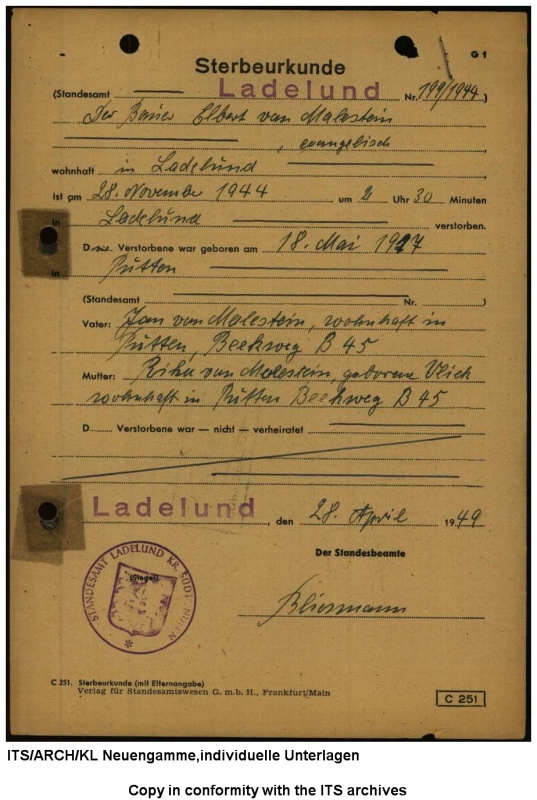 G 1
Sterbeurkunde
(Standesamt Ladelund Nr. 199/1944)
Der Bauer Elbert van Malestein
, evangelisch
wohnhaft in Ladelund
ist am 28. November 1944 um 2 Uhr 30 Minuten
in Ladelund verstorben.
D..... Verstorbene war geboren am 18. Mai 1927
in Putten
(Standesamt Nr. )
Vater: Jan van Malestein, wohnhaft in
Putten, Beekweg B 45
Mutter: van Malestein, geborene
wohnhaft in Putten Beekweg B 45
D..... Verstorbene war — nicht — verheiratet
Ladelund, den 28. April 1949
Der Standesbeamte
(Siegel)
STANDESAMT LADELUND KR. SÜDTONDERN
C 251. Sterbeurkunde (mit Elternangabe)
Verlag für Standesamtswesen G. m. b. H., Frankfurt/Main
C 251
ITS/ARCH/KL Neuengamme,individuelle Unterlagen
Copy in conformity with the ITS archives